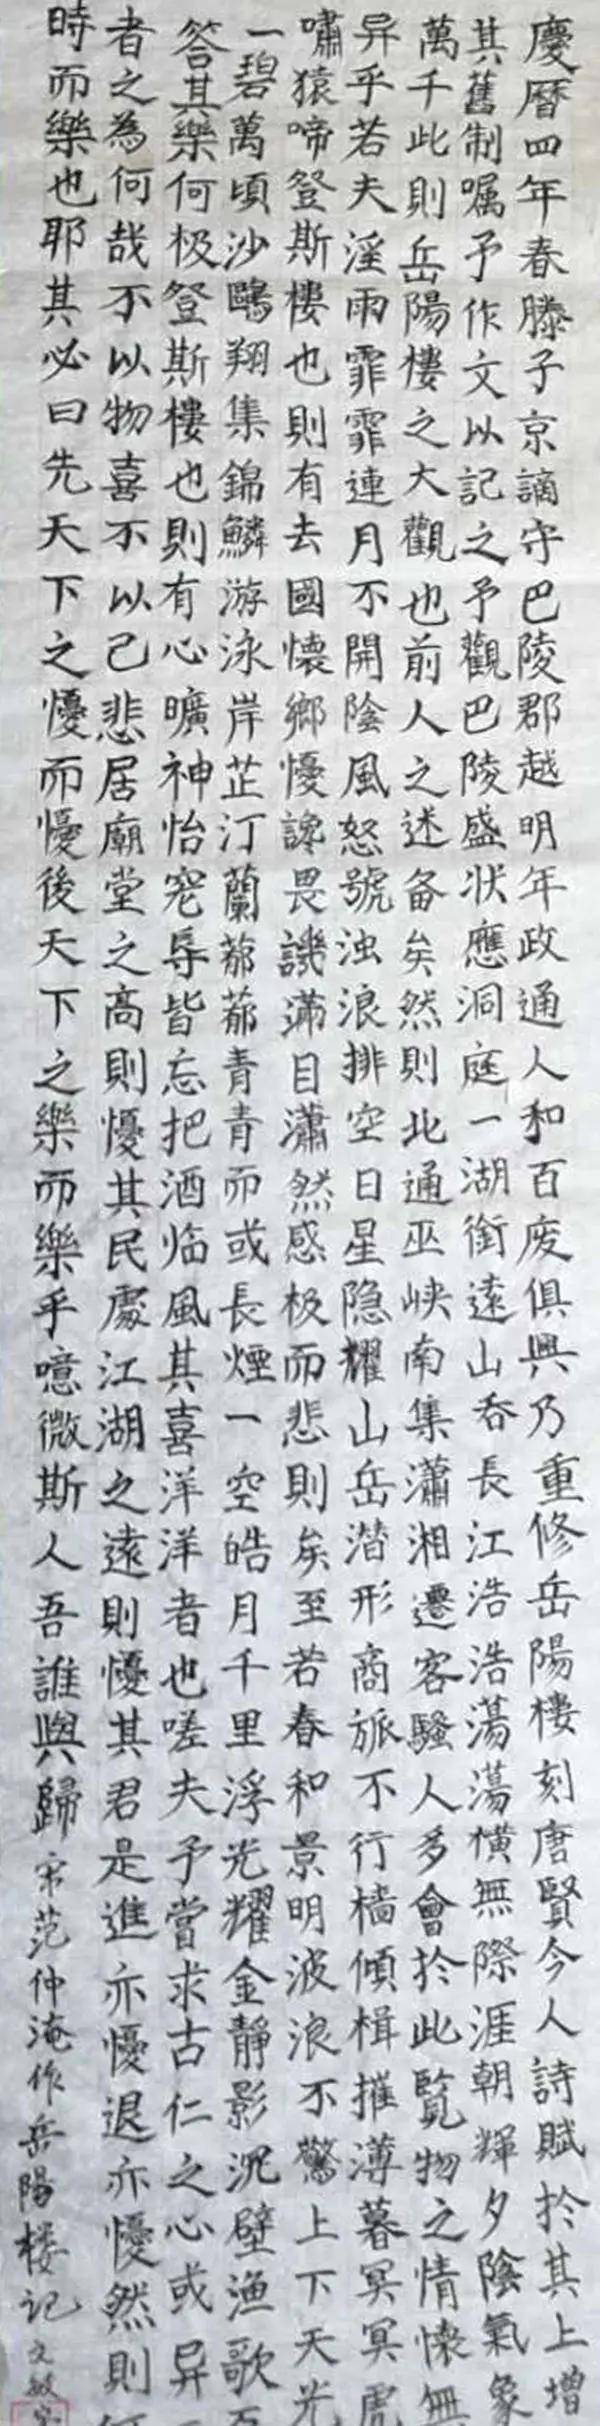 慶暦四年春滕子京謫守巴陵郡越明年政通人和百废俱興乃重修岳陽樓刻唐賢今人詩賦於其上增
其舊制嘱予作文以記之予觀巴陵盛状應洞庭一湖銜遠山吞長江浩浩蕩蕩横無際涯朝輝夕陰氣象
萬千此則岳陽樓之大觀也前人之述备矣然則北通巫峡南集瀟湘遷客騷人多會於此覧物之情懷無
异乎若夫淫雨霏霏連月不開陰風怒號浊浪排空日星隐耀山岳潜形商旅不行樯傾楫摧薄暮冥冥虎
嘯猿啼登斯樓也則有去國懷鄉懮讒畏譏满目瀟然感极而悲則矣至若春和景明波浪不驚上下天光
一碧萬頃沙鷗翔集錦鱗游泳岸芷汀蘭郁郁青青而或長煙一空皓月千里浮光耀金靜影沉壁渔歌互
答其樂何极登斯樓也則有心曠神怡宠辱皆忘把酒临風其喜洋洋者也嗟夫予嘗求古仁之心或异
者之為何哉不以物喜不以己悲居廟堂之高則懮其民處江湖之遠則懮其君是進亦懮退亦懮然則何
時而樂也耶其必曰先天下之懮而懮後天下之樂而樂乎噫微斯人吾誰與歸宋范仲淹作岳陽楼记文敏